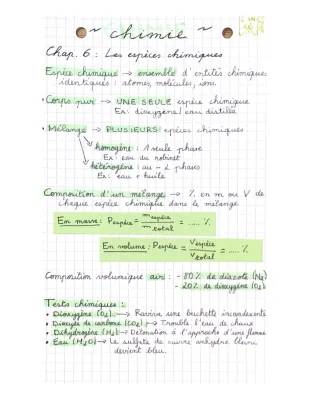 ~ chimie ~
Chap. 6 : Les espèces chimiques
Espèce chimique → ensemble d'entités chimiques
identiques : atomes, molécules, ions.
• Corps pur → UNE SEULE espèce chimique
Ex : dioxygène / eau distillée
• Mélange → PLUSIEURS espèces chimiques
homogène : 1 seule phase
Ex : eau du robinet
hétérogène : au - 2 phases
Ex : eau + huile
Composition d'un mélange → % en m ou V de
chaque espèce chimique dans le mélange
En masse : Pespèce = mespèce / mtotal = ..... %
En volume : Pespèce = Vespèce / Vtotal = ..... %
Composition volumique air : - 80% de diazote (N₂)
- 20% de dioxygène (O₂)
Tests chimiques :
• Dioxygène (O₂) → Ravive une buchette incandescente
• Dioxyde de carbone (CO₂) → Trouble l'eau de chaux
• Dihydrogène (H₂) → Détonation à l'approche d'une flamme
• Eau (H₂O) → Le sulfate de cuivre anhydre blanc
devient bleu.